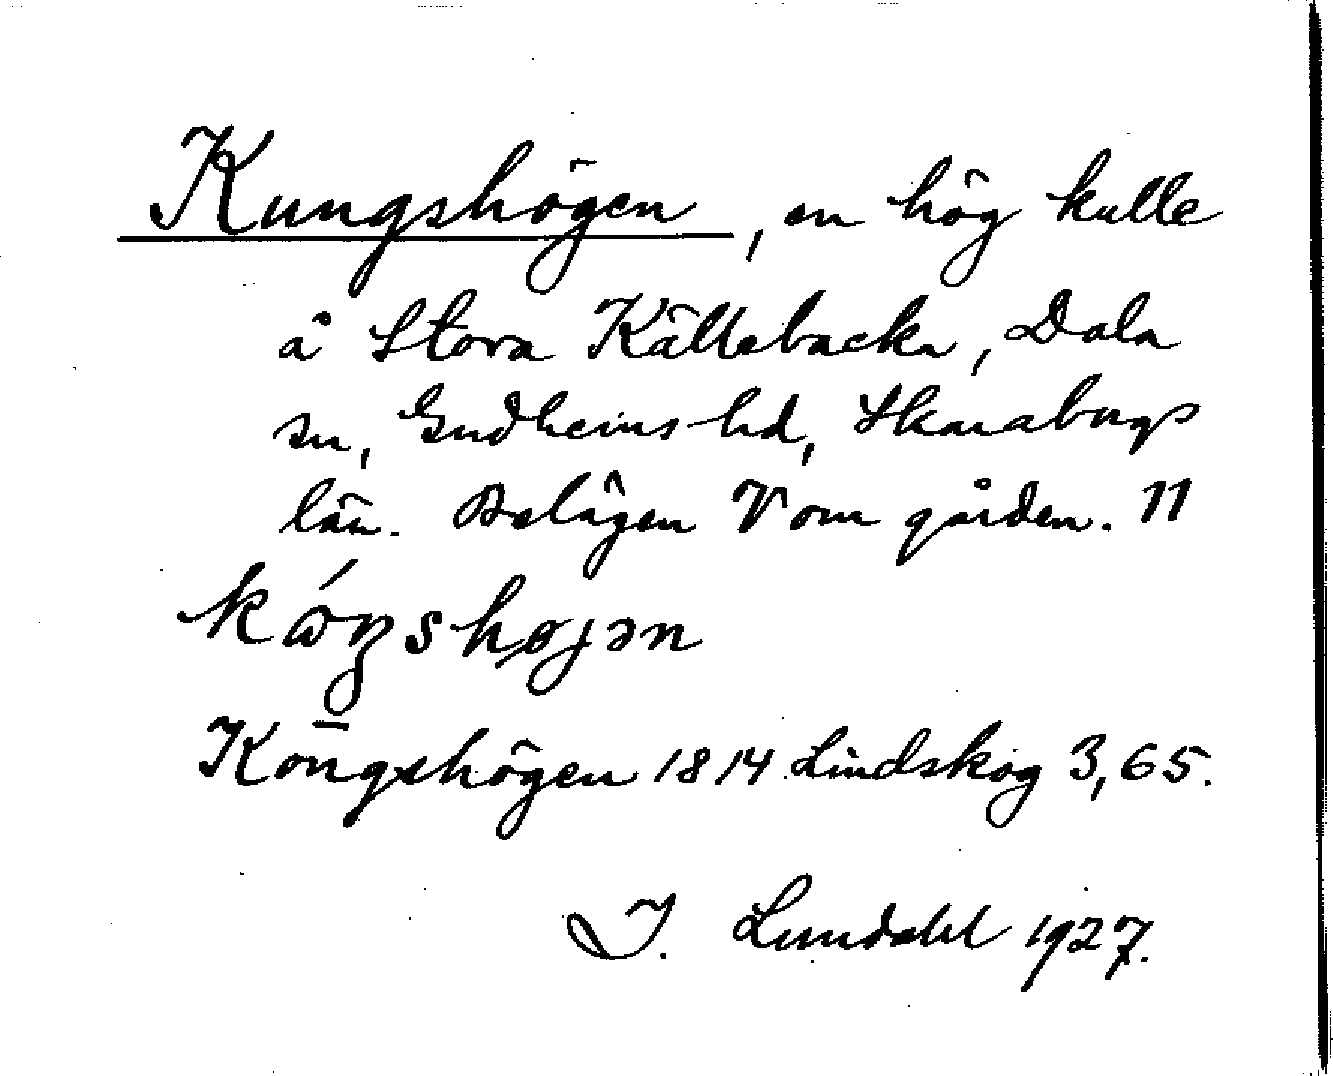 Kungshögen, en hög kulle
å Stora Källebacka, Dala
sn, Gudhems hd, Skaraborgs
län. Belägen V om gården. 11
kóŋshøjən
Kongshögen 1814 Lindskog 3,65.
I. Lundahl 1927.